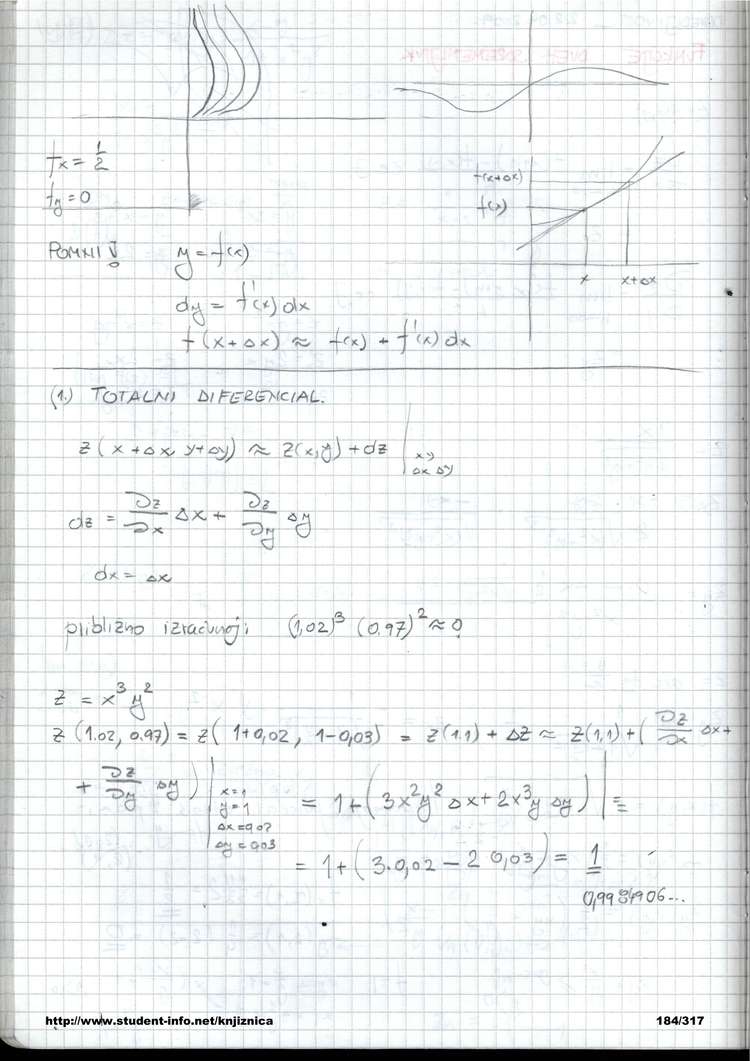 f(x+Δx)
f(x)
x x+Δx
fx = 1/2
fy = 0
POMNI !
y = f(x)
dy = f'(x) dx
f(x+Δx) ≈ f(x) + f'(x) dx
(1.) TOTALNI DIFERENCIAL.
z(x+Δx, y+Δy) ≈ z(x,y) + dz | x y Δx Δy
dz = ∂z/∂x Δx + ∂z/∂y Δy
dx = Δx
približno izračunaj: (1,02)³ (0,97)² ≈ ?
z = x³y²
z(1.02, 0.97) = z(1+0,02, 1-0,03) = z(1.1) + Δz ≈ z(1,1) + (∂z/∂x Δx +
+ ∂z/∂y Δy) | x=1 y=1 Δx=0,02 Δy=0,03 = 1+(3x²y² Δx + 2x³y Δy) | =
= 1+(3·0,02 - 2 0,03) = 1
http://www.student-info.net/knjiznica 184/317